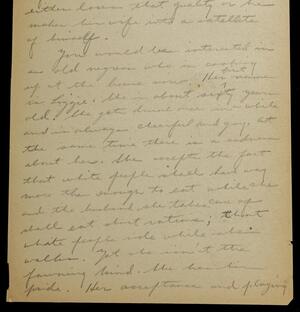 either loses that quality or he
makes his wife into a satellite
of himself.
You would be interested in
an old negress who is cooking
up at the house now. Her name
is Lizzie. She is about sixty years
old. She gets drunk once in a while
and is always cheerful and gay. At
the same time there is a sadness
about her. She accepts the fact
that white people shall have
more than enough to eat while she
and the husband she takes care of
shall eat short rations; that
white people ride while she
walks. Yet she isn't the
fawning kind. She has
pride. Her acceptance and playing